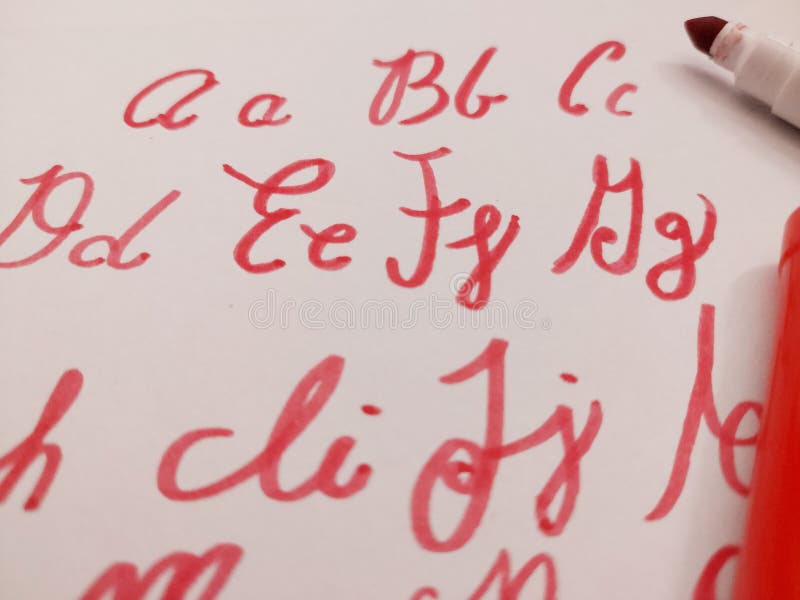 A a B b C c
D d E e F f G g
h I i J j